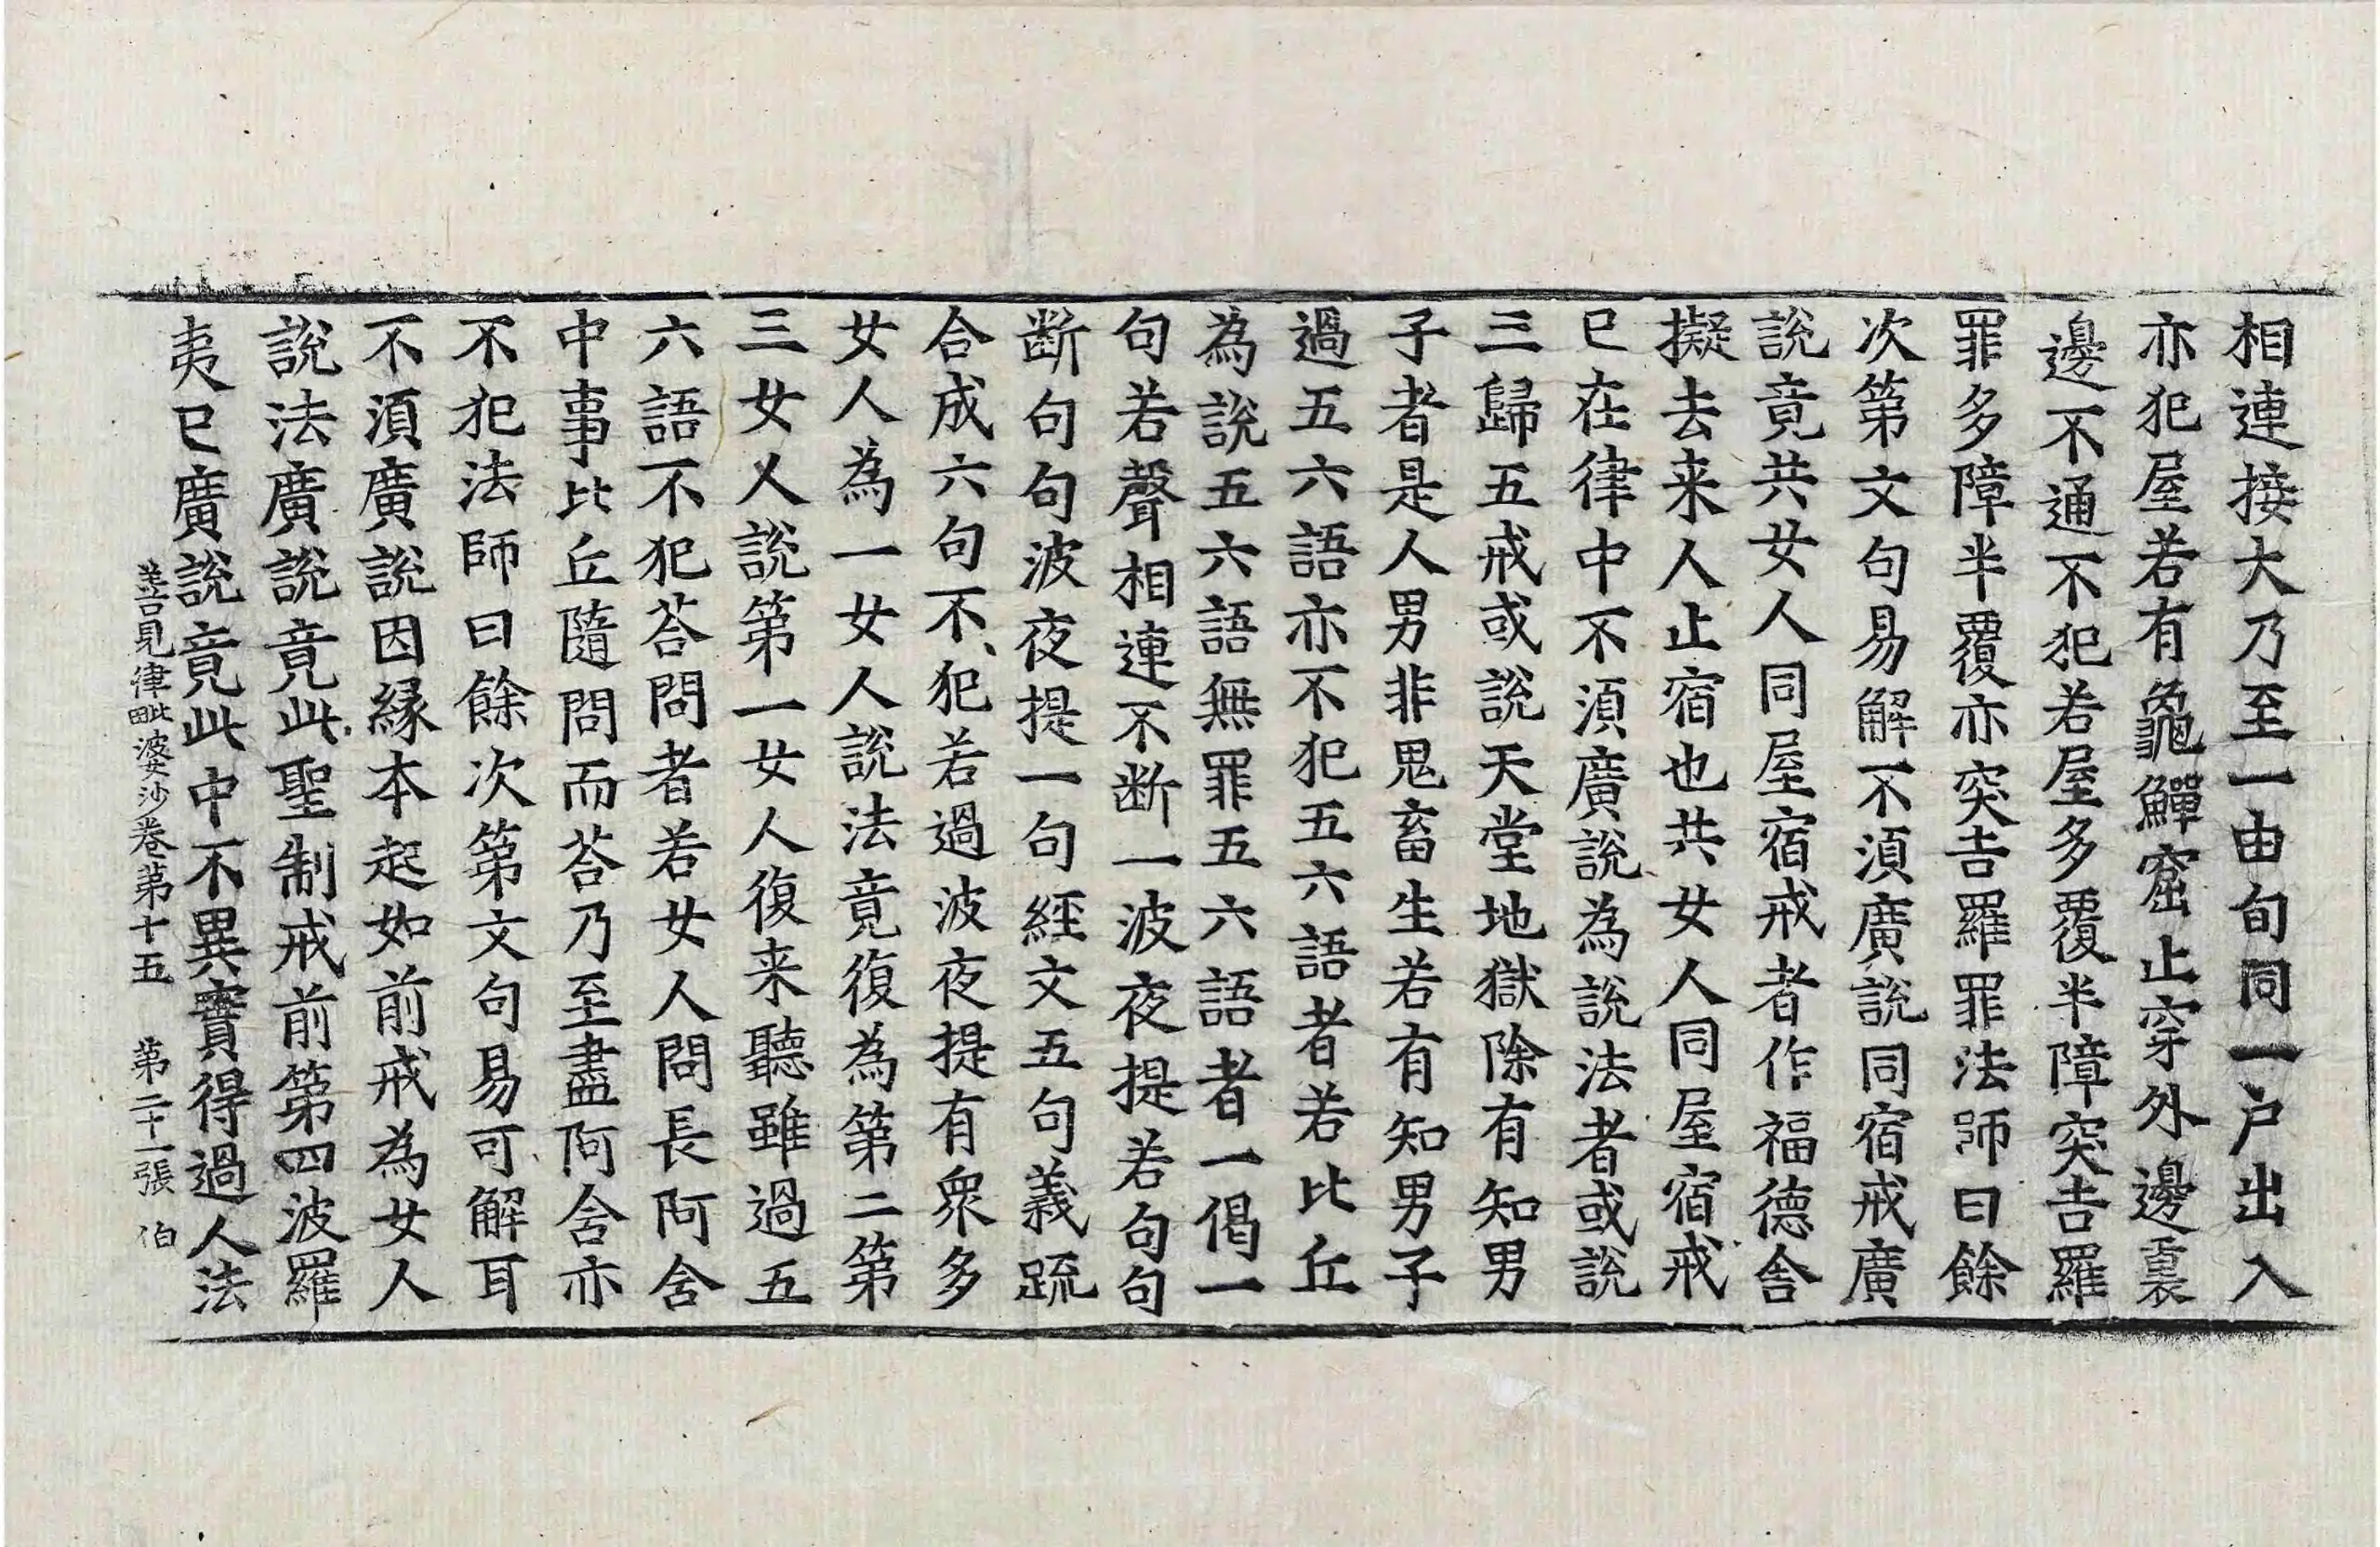 相連接大乃至一由旬同一户出入
亦犯屋若有龜鱓窟止穿外邊裏
邊不通不犯若屋多覆半障突吉羅
罪多障半覆亦突吉羅罪法師曰餘
次第文句易解不須廣說同宿戒廣
說竟共女人同屋宿戒者作福德舍
擬去来人止宿也共女人同屋宿戒
已在律中不須廣說為說法者或說
三歸五戒或說天堂地獄除有知男
子者是人男非鬼畜生若有知男子
過五六語亦不犯五六語者若比丘
為說五六語無罪五六語者一偈一
句若聲相連不断一波夜提若句句
断句句波夜提一句經文五句義䟽
合成六句不犯若過波夜提有眾多
女人為一女人說法竟復為第二第
三女人說第一女人復来聽雖過五
六語不犯荅問者若女人問長阿舍
中事比丘隨問而荅乃至盡阿舍亦
不犯法師曰餘次第文句易可解耳
不須廣說因緣本起如前戒為女人
說法廣說竟此聖制戒前第四波羅
夷已廣說竟此中不異實得過人法
善見律毗婆沙卷第十五 第二十一張 伯